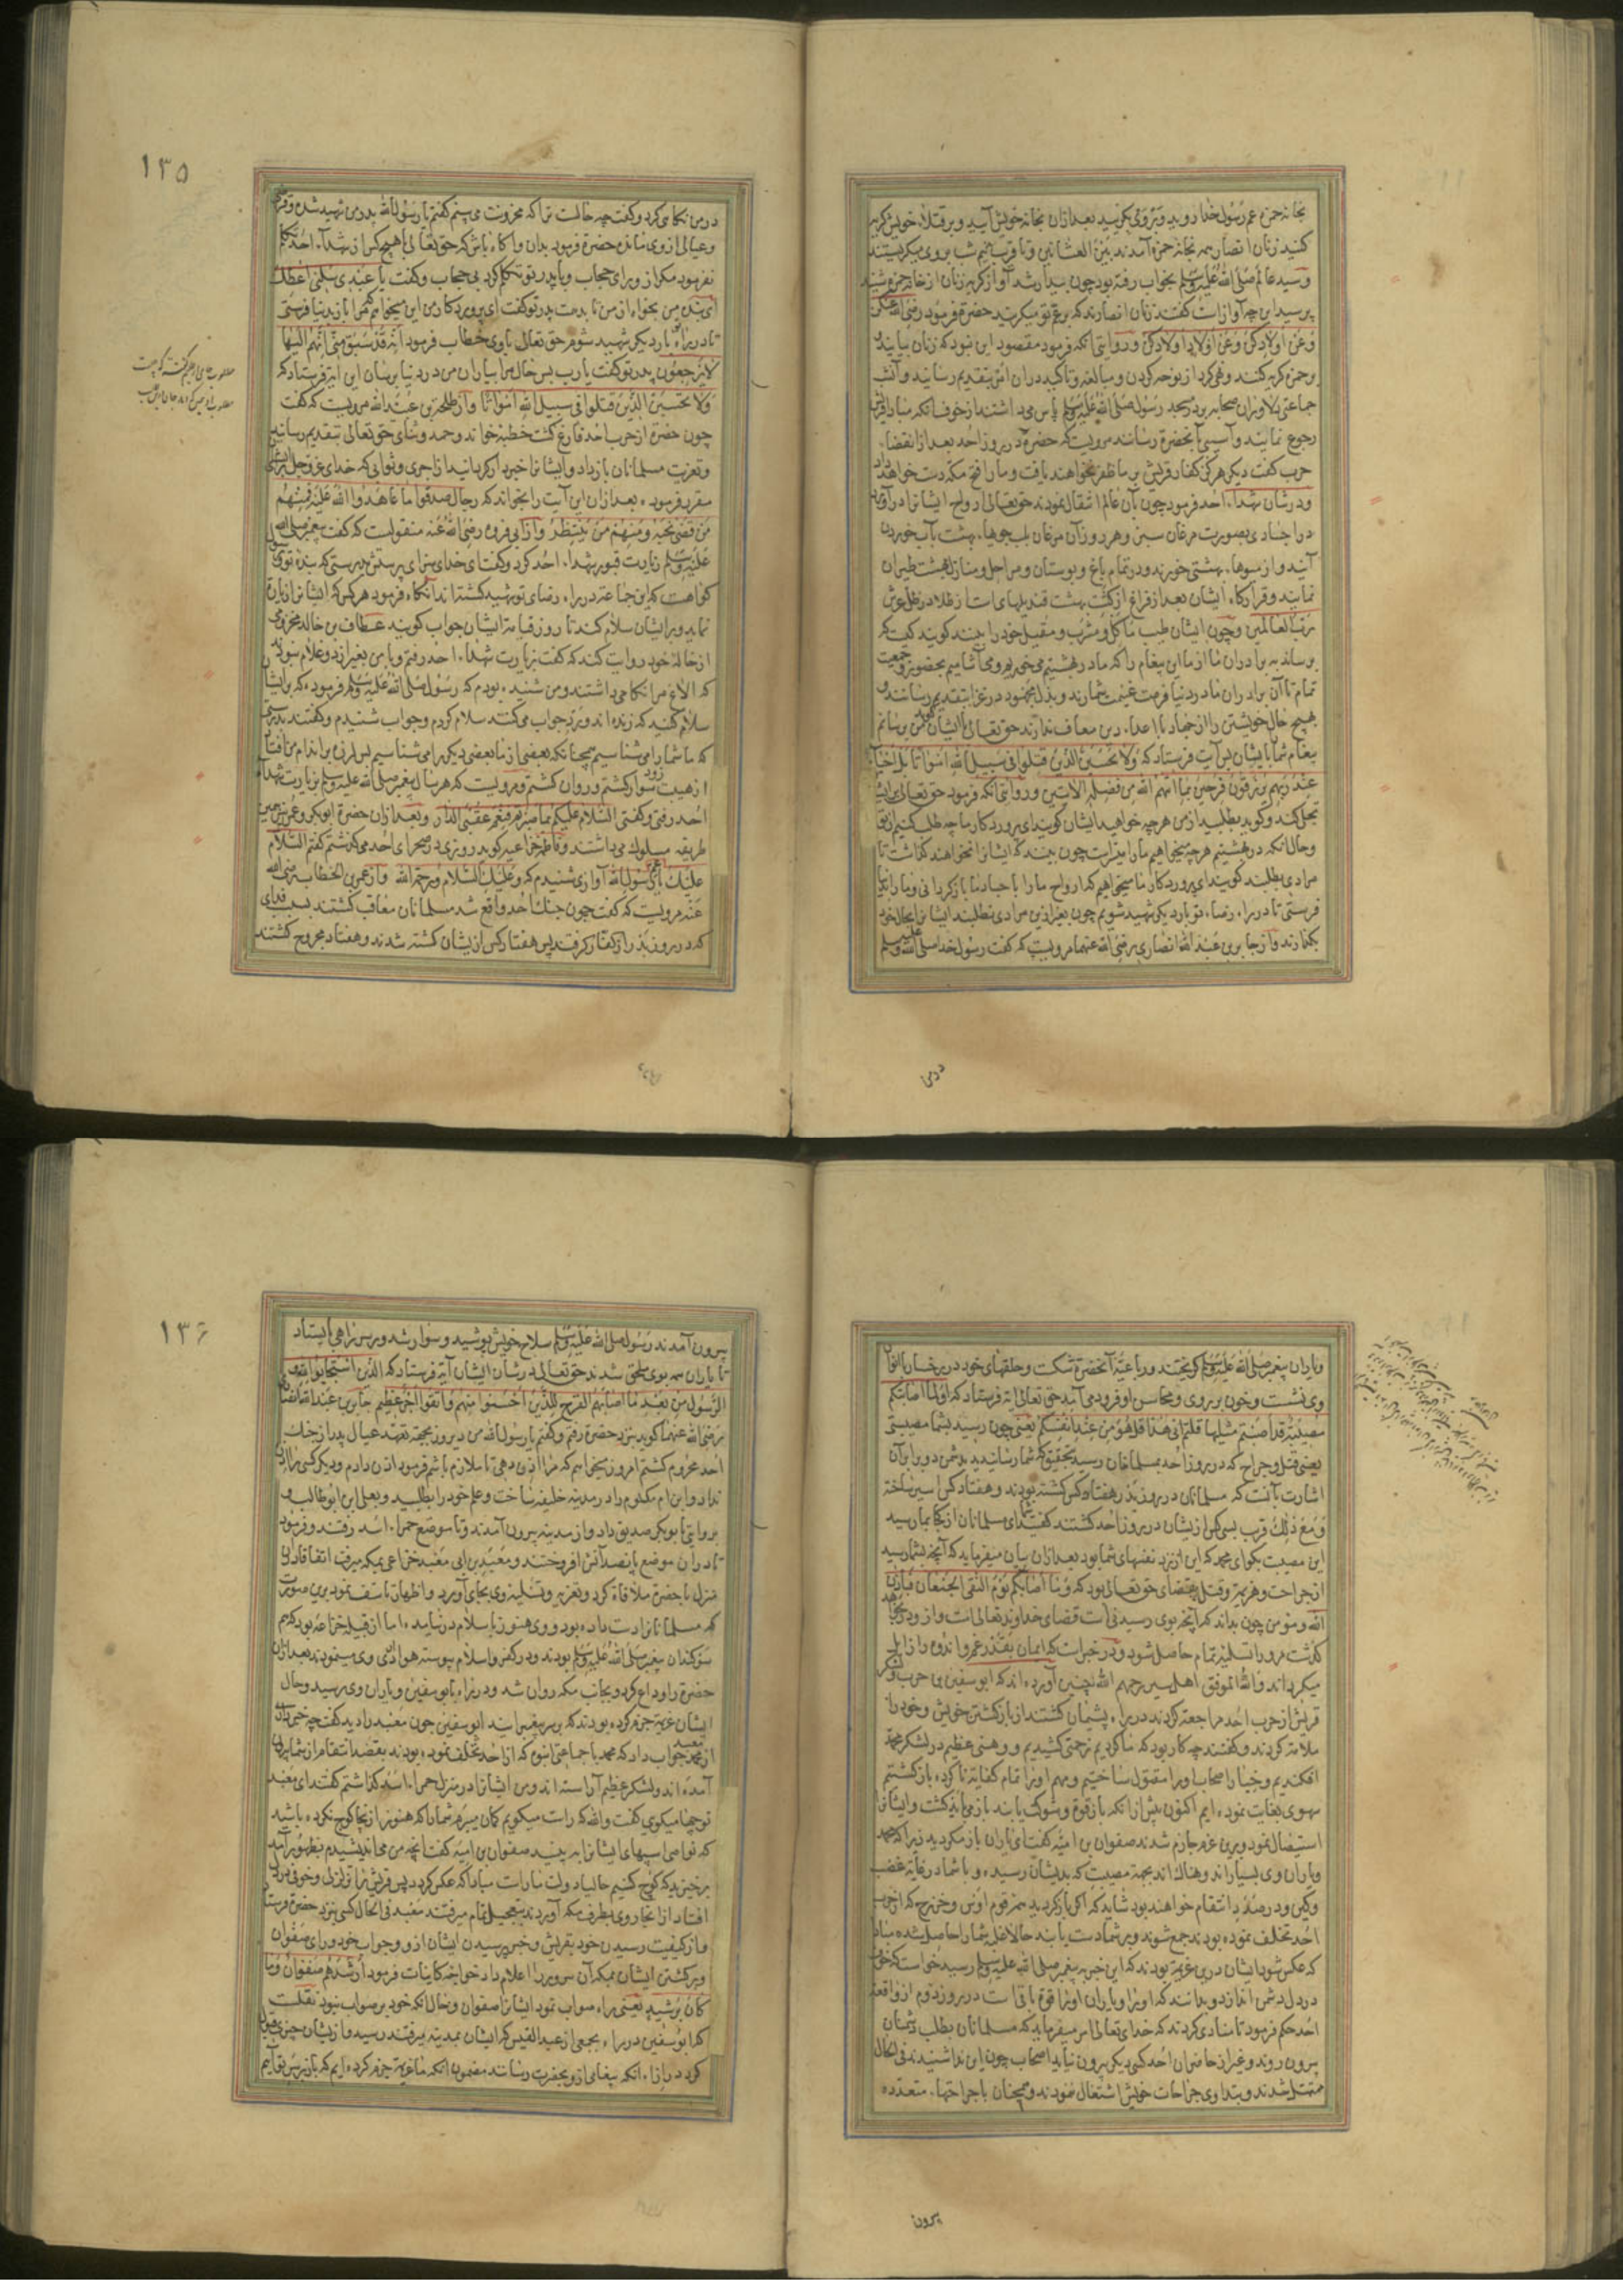 بخانه حمزه عم رسول خدا روید و بر وی بگریید بعد ازان بخانه خویش آیید و بر قتلاء خویش گریه
کنید زنان انصار همه بخانه حمزه آمدند بین العشائین و تا قریب نیم شب بر وی میگریستند
و سید عالم صلی الله علیه وسلم بخواب رفته بود چون بیدار شد آواز گریه زنان از خانه حمزه شنید
پرسید این چه آواز است گفتند زنان انصارند که بر عم تو میگریند حضرة فرمود رضی الله عنکن
و عن اولادکن و عن اولاد اولادکن و روایتی آنکه فرمود مقصود این نبود که زنان بیایند و
بر حمزه گریه کنند و نهی کرد از نوحه کردن و مبالغه و تاکید دران امر بتقدیم رسانید و آنشب
جماعتی دلاوران صحابه بر در مسجد رسول صلی الله علیه وسلم پاس می داشتند از خوف آنکه مبادا قریش
رجوع نمایند و آسیبی بآنحضرة رسانند مرویست که حضرة در روز احد بعد از انقضاء
حرب گفت دیگر هرگز کفار قریش بر ما ظفر نخواهند یافت و ما را فتح مکه دست خواهد داد
و در شان شهداء احد فرمود چون بآن عالم انتقال نمودند حق تعالی ارواح ایشانرا درآورد
در اجسادی بصورت مرغان سبز و هر روز آن مرغان بلب جویهاء بهشت آب خوردن
آیند و از میوهاء بهشتی خورند و در تمام باغ و بوستان و مراحل و منازل بهشت طیران
نمایند و قرارگاه ایشان بعد از فراغ از گشت بهشت قندیلهای است از طلا در ظل عرش
رب العالمین و چون ایشان طیب ماکل و مشرب و مقیل خود را بینند گویند کیست که
برساند به برادران ما از ما این پیغام را که ما در بهشتیم می خوریم و می آشامیم بحضور و جمعیت
تمام تا آن برادران ما در دنیا فرصت غنیمت شمارند و بذل مجهود در غزا بتقدیم رسانند و
بهیچ حال خویشتن را از جهاد با اعداء دین معاف ندارند حق تعالی با ایشان گفت من برسانم
پیغام شما بایشان پس آیت فرستاد که ولا تحسبن الذین قتلوا فی سبیل الله امواتا بل احیاء
عند ربهم یرزقون فرحین بما آتیهم الله من فضله الآیتین و روایتی آنکه فرمود حق تعالی برایشان
تجلی کند و گوید بطلبید از من هر چه خواهید ایشان گویند ای پروردگار ما چه طلب کنیم از تو
و حال آنکه در بهشتیم هر چه میخواهیم ما را میسرست چون بینند که ایشانرا نخواهند گذاشت تا
مرادی بطلبند گویند ای پروردگار ما میخواهیم که ارواح ما را باجساد ما بازگردانی و ما را بدنیا
فرستی تا در راه رضاء تو بار دیگر شهید شویم چون بغیر ازین مرادی نطلبند ایشانرا بحال خود
بگذارند و از جابر بن عبد الله انصاری رضی الله عنهما مرویست که گفت رسول خدا صلی الله علیه وسلم
در من
١٣٥
در من نگاهی کرد و گفت چه حالست ترا که محزونت می بینم گفتم یا رسول الله پدر من شهید شده و قرض
و عیالی از وی مانده حضرة فرمود بدان و آگاه باش که حق تعالی با هیچ کس از شهداء احد تکلم
نفرمود مگر از ورای حجاب و با پدر تو تکلم کرد بی حجاب و گفت یا عبدی سلنی اعطک
ای بنده من بخواه از من تا بدهمت پدر تو گفت ای پروردگار من این میخواهم که مرا باز بدنیا فرستی
تا در راه تو بار دیگر شهید شوم حق تعالی با وی خطاب فرمود انه قد سبق منی انهم الیها
لا یرجعون پدر تو گفت یا رب پس حال مرا بیاران من در دنیا برسان این آیة فرستاد که
ولا تحسبن الذین قتلوا فی سبیل الله امواتا و از طلحة بن عبد الله مرویست که گفت
چون حضرة از حرب احد فارغ گشت خطبه خواند و حمد و ثنای حق تعالی بتقدیم رسانید
و تعزیت مسلمانان بازداد و ایشانرا خبردار گردانید از اجری و ثوابی که خدای عز و جل برایشان
مقرر فرموده بعد ازان این آیت را بخواند که رجال صدقوا ما عاهدوا الله علیه فمنهم
من قضی نحبه و منهم من ینتظر و از ابی فروه رضی الله عنه منقولست که گفت پیغمبر صلی الله
علیه وسلم زیارت قبور شهداء احد کرد و گفت ای خدای سزای پرستش بدرستی که بنده تو و رسول تو
گواهست که این جماعة در راه رضای تو شهید گشته اند آنگاه فرمود هر کس که ایشانرا زیارت
نماید و بر ایشان سلام کند تا روز قیامة ایشان جواب گویند عطاف بن خالد مخزومی
از خالهٔ خود روایت کند که گفت بزیارت شهداء احد رفتم و با من بغیر از دو غلام نبود
که الاغ مرا نگاه می داشتند و من شنیده بودم که رسول صلی الله علیه وسلم فرموده که برایشان
سلام کنید که زنده اند و رد جواب می کنند سلام کردم و جواب شنیدم و گفتند بدرستی
که ما شما را می شناسیم همچنانکه بعضی از ما بعضی دیگر را می شناسیم پس لرزه بر اندام من افتاد
از هیبت زود سوار گشتم و روان گشتم و مرویست که هر سال پیغمبر صلی الله علیه وسلم بزیارت شهداء
احد رفتی و گفتی السلام علیکم بما صبرتم فنعم عقبی الدار و بعد ازان حضرة ابوبکر و عمر نیز همین
طریقه مسلوک می داشتند و فاطمه خزاعیه گوید روزی در صحرای احد می گذشتم گفتم السلام
علیک یا عم رسول الله آوازی شنیدم که وعلیک السلام ورحمة الله و از عمر بن الخطاب رضی الله
عنه مرویست که گفت چون جنک احد واقع شد مسلمانان معاقب گشتند بسبب فدای
که در روز بدر از کفار گرفتند پس هفتاد کس از یشان کشته شدند و هفتاد مجروح گشتند
و یاران پیغمبر صلی الله علیه وسلم گریختند و رباعیهٔ آنحضرة شکست و حلقهای خود در رخسار با انوار
وی نشست و خون بر روی و محاسن او فرود می آمد حق تعالی آیة فرستاد که اولما اصابتکم
مصیبة قد اصبتم مثلیها قلتم انی هذا قل هو من عند انفسکم یعنی چون رسید بشما مصیبتی
یعنی قتل و جراح که در روز احد بمسلمانان رسید بتحقیق که شما رسانیدید بدشمن دو برابر آن
اشارت بآنست که مسلمانان در روز بدر هفتاد کس کشته بودند و هفتاد کس اسیر ساخته
و مع ذلک قرب بسی کس از یشان در روز احد کشتند گفتید شما ای مسلمانان از کجا بما رسید
این مصیبت بگو ای محمد که این از نزد نفسهای شما بود بعد ازان بیان میفرماید که آنچه بشما رسید
از جراحت و هزیمة و قتل بقضای حق تعالی بود که و ما اصابکم یوم التقی الجمعان فباذن
الله و مؤمن چون بداند که آنچه بوی رسیدنی است قضای خداوند تعالی است و ازو در نخواهد
گذشت مر او را تسلیهٔ تمام حاصل شود و در خبرست که ایمان بقدر غم و اندوه را زایل
میگرداند والله الموفق اهل سیر رحمهم الله چنین آورده اند که ابوسفین بن حرب و لشکر
قریش از حرب احد مراجعة کردند در راه پشیمان گشتند از بازگشتن خویش و خود را
ملامة کردند و گفتند چه کار بود که ما کردیم زحمتی کشیدیم و وهنی عظیم در لشکر محمد
افکندیم و خیار اصحاب او را مقتول ساختیم و مهم او را تمام کفایة ناکرده بازگشتیم
سهوی بغایت نموده ایم اکنون پیش از آنکه باز قوة و شوکت یابند باز می باید گشت و ایشانرا
استیصال نمود و برین عزم جازم شدند صفوان بن امیه گفت ای یاران باز مگردید زیرا که محمد
و یاران وی بسیار اندوهناک اند بجهة مصیبت که بدیشان رسیده و با شما در غایة غضب
و کین و در صدد انتقام خواهند بود شاید که اگر بازگردید هر قوم اوس و خزرج که از حرب
احد تخلف نموده بودند جمع شوند و بر شما دست یابند حالا غلبه شما را حاصل شده مبادا
که عکس شود ایشان درین عزیمة بودند که این خبر به پیغمبر صلی الله علیه وسلم رسید خواست که خوف
در دل دشمن اندازد و بدانند که او را و یاران او را قوة باقی است در روز دوم از واقعهٔ
احد حکم فرمود تا منادی کردند که خدای تعالی امر میفرماید که مسلمانان بطلب دشمنان
بیرون روند و غیر از حاضران احد کس دیگر بیرون نیاید اصحاب چون این ندا شنیدند فی الحال
ممتثل شدند و بتداوی جراحات خویش اشتغال ننمودند و همچنان با جراحتهاء متعدده
بیرون
١٣٦
بیرون آمدند رسول صلی الله علیه وسلم سلاح خویش پوشید و سوار شد و بر سر راهی بایستاد
تا یاران همه بوی ملحق شدند حق تعالی در شان ایشان آیة فرستاد که الذین استجابوا لله و
الرسول من بعد ما اصابهم القرح للذین احسنوا منهم و اتقوا اجر عظیم جابر بن عبد الله انصاری
رضی الله عنهما گوید بنزد حضرة رفتم و گفتم یا رسول الله من دیروز بجهة تعهد عیال پدر از جنک
احد محروم گشتم امروز میخواهم که مرا اذن دهی تا ملازم باشم فرمود اذن دادم و دیگر کسی را اذن
نداد و ابن ام مکتوم را در مدینه خلیفه ساخت و علم خود را بطلبید و بعلی ابن ابوطالب و
بروایتی بابوبکر صدیق داد و از مدینه بیرون آمدند و تا موضع حمراء اسد رفتند و فرمود
تا دران موضع پانصد آتش افروختند و معبد بن ابی معبد خزاعی بمکه میرفت اتفاقا در آن
منزل با حضرة ملاقاة کرد و تعزیه و تسلیه وی بجای آورد و اظهار تاسف نمود برین صورت
که مسلمانانرا دست داده بود و وی هنوز باسلام در نیامده اما از قبیله خزاعه بود که هم
سوگندان پیغمبر صلی الله علیه وسلم بودند و در کفر و اسلام پیوسته هواداری وی مینمودند بعد ازان
حضرة را وداع کرد و بجانب مکه روان شد و در راه بابوسفین و یاران وی رسید و حال
ایشان عزیمة جزم کرده بودند که بر سر پیغمبر آیند ابوسفین چون معبد را دید گفت چه خبر داری
از محمد معبد جواب داد که محمد با جماعتی انبوه که از احد تخلف نموده بودند بقصد انتقام از شما بیرون
آمده اند و لشکر عظیم آراسته اند و من ایشانرا در منزل حمراء اسد گذاشتم گفت ای معبد
تو چها میگوی گفت والله که راست میگویم گمان میبرم شما را که هنوز از اینجا کوچ نکرده باشید
که نواصی اسپهای ایشانرا به بینید صفوان بن امیه گفت آنچه من می اندیشیدم بظهور آمد
برخیزید که کوچ کنیم حالیا دولت ما راست مبادا که عکس گردد پس قریش را تزلزل و خوفی در دل
افتاد از آنجا روی بطرف مکه آوردند بتعجیل تمام میرفتند معبد فی الحال کسی بنزد حضرة فرستاد
و از کیفیت رسیدن خود بقریش و خبر پرسیدن ایشان ازو و جواب خود و رای صفوان
و برگشتن ایشان بمکه آن سرور را اعلام داد خواجه کاینات فرمود ارشدهم صفوان و ما
کان برشید یعنی براه صواب نمود ایشانرا صفوان و حال آنکه خود بر صواب نبود نقلست
که ابوسفین در راه بجمعی از عبد القیس که ایشان بمدینه میرفتند رسید و از یشان چیزی قبول
کرد در ازاء آنکه پیغامی ازو بحضرت رسانند مضمون آنکه ما عزیمة جزم کرده ایم که باز بر سر تو آییم